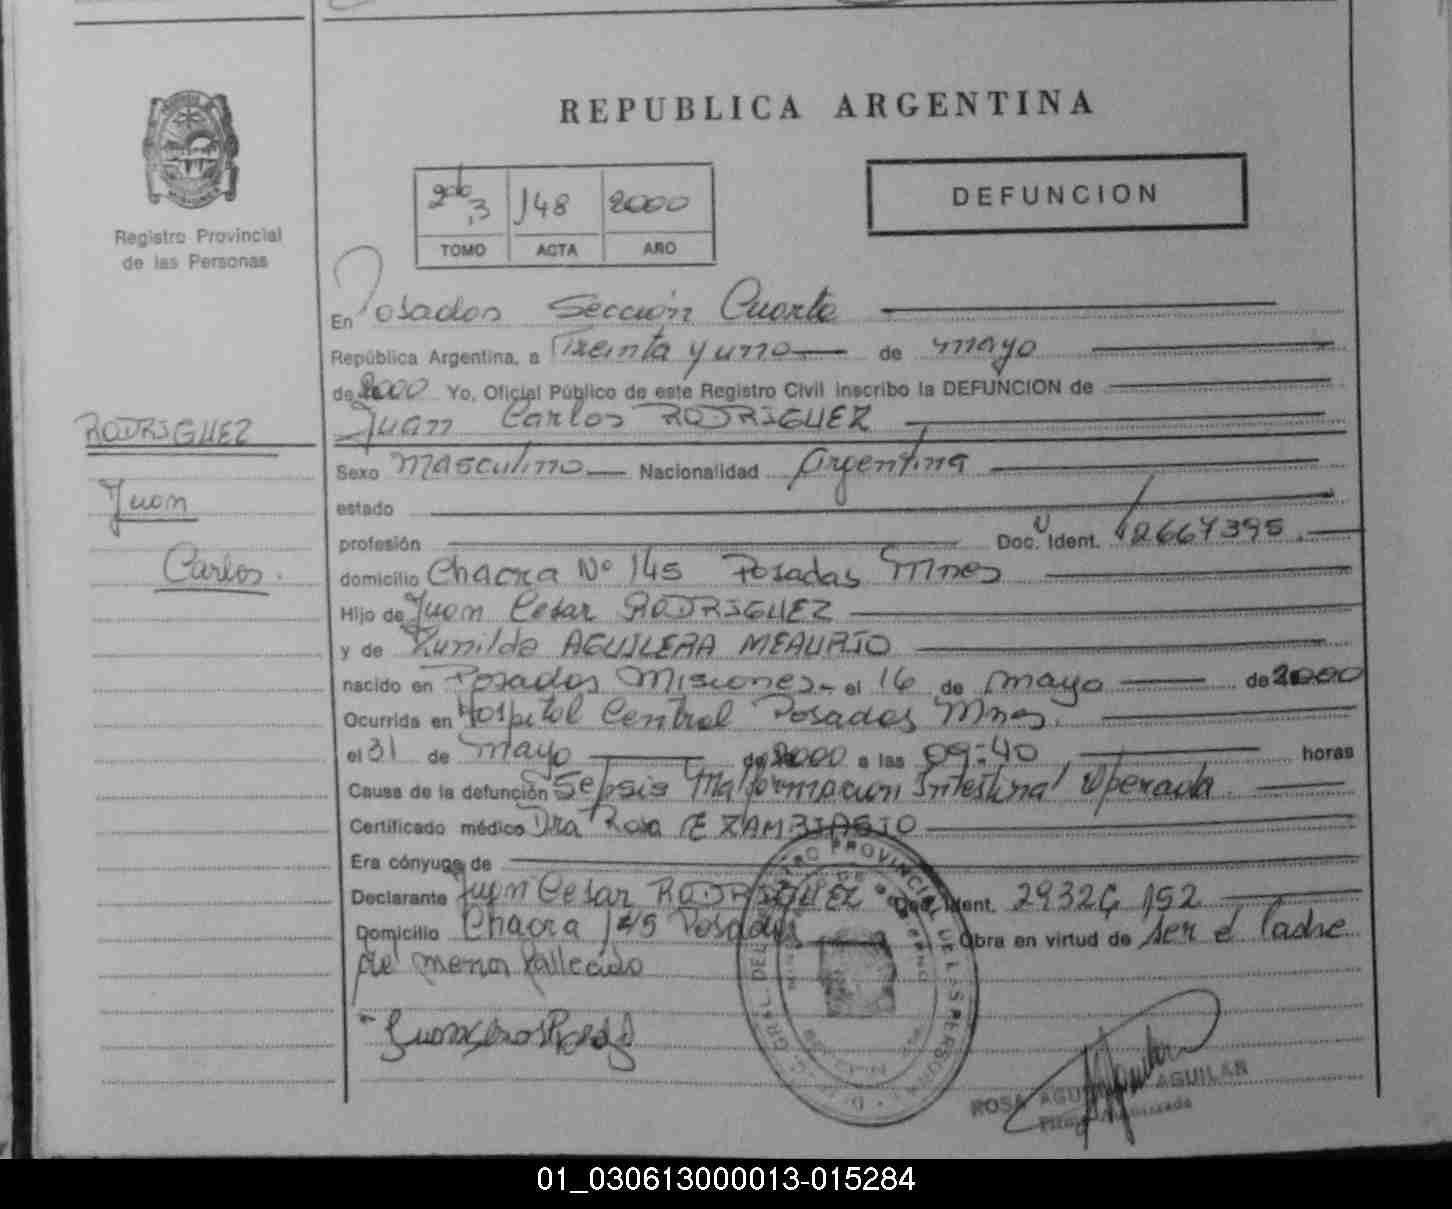 REPUBLICA ARGENTINA
2do 3 148 2000
TOMO ACTA AÑO
DEFUNCION
Registro Provincial
de las Personas
En Posadas Sección Cuarta
República Argentina, a Treinta y uno de mayo
de 2000 Yo, Oficial Público de este Registro Civil inscribo la DEFUNCION de
RODRIGUEZ
Juan
Carlos.
Juan Carlos RODRIGUEZ
Sexo Masculino Nacionalidad Argentina
estado
profesión Doc. Ident.
domicilio Chacra Nº 145 Posadas Mnes
Hijo de Juan Cesar RODRIGUEZ
y de Zunilda AGUILERA MEAURIO
nacido en Posadas Misiones- el 16 de mayo de 2000
Ocurrida en Hospital Central Posadas Mnes.
el 31 de Mayo de 2000 a las 09:40 horas
Causa de la defunción Sepsis Malformacion Intestinal Operada
Certificado médico Dra Rosa E ZAMBIASIO
Era cónyuge de
Declarante Juan Cesar RODRIGUEZ Doc. Ident.
Domicilio Chacra 145 Posadas Obra en virtud de ser el Padre
de menor fallecido
ROSA AGUILAR
01_030613000013-015284